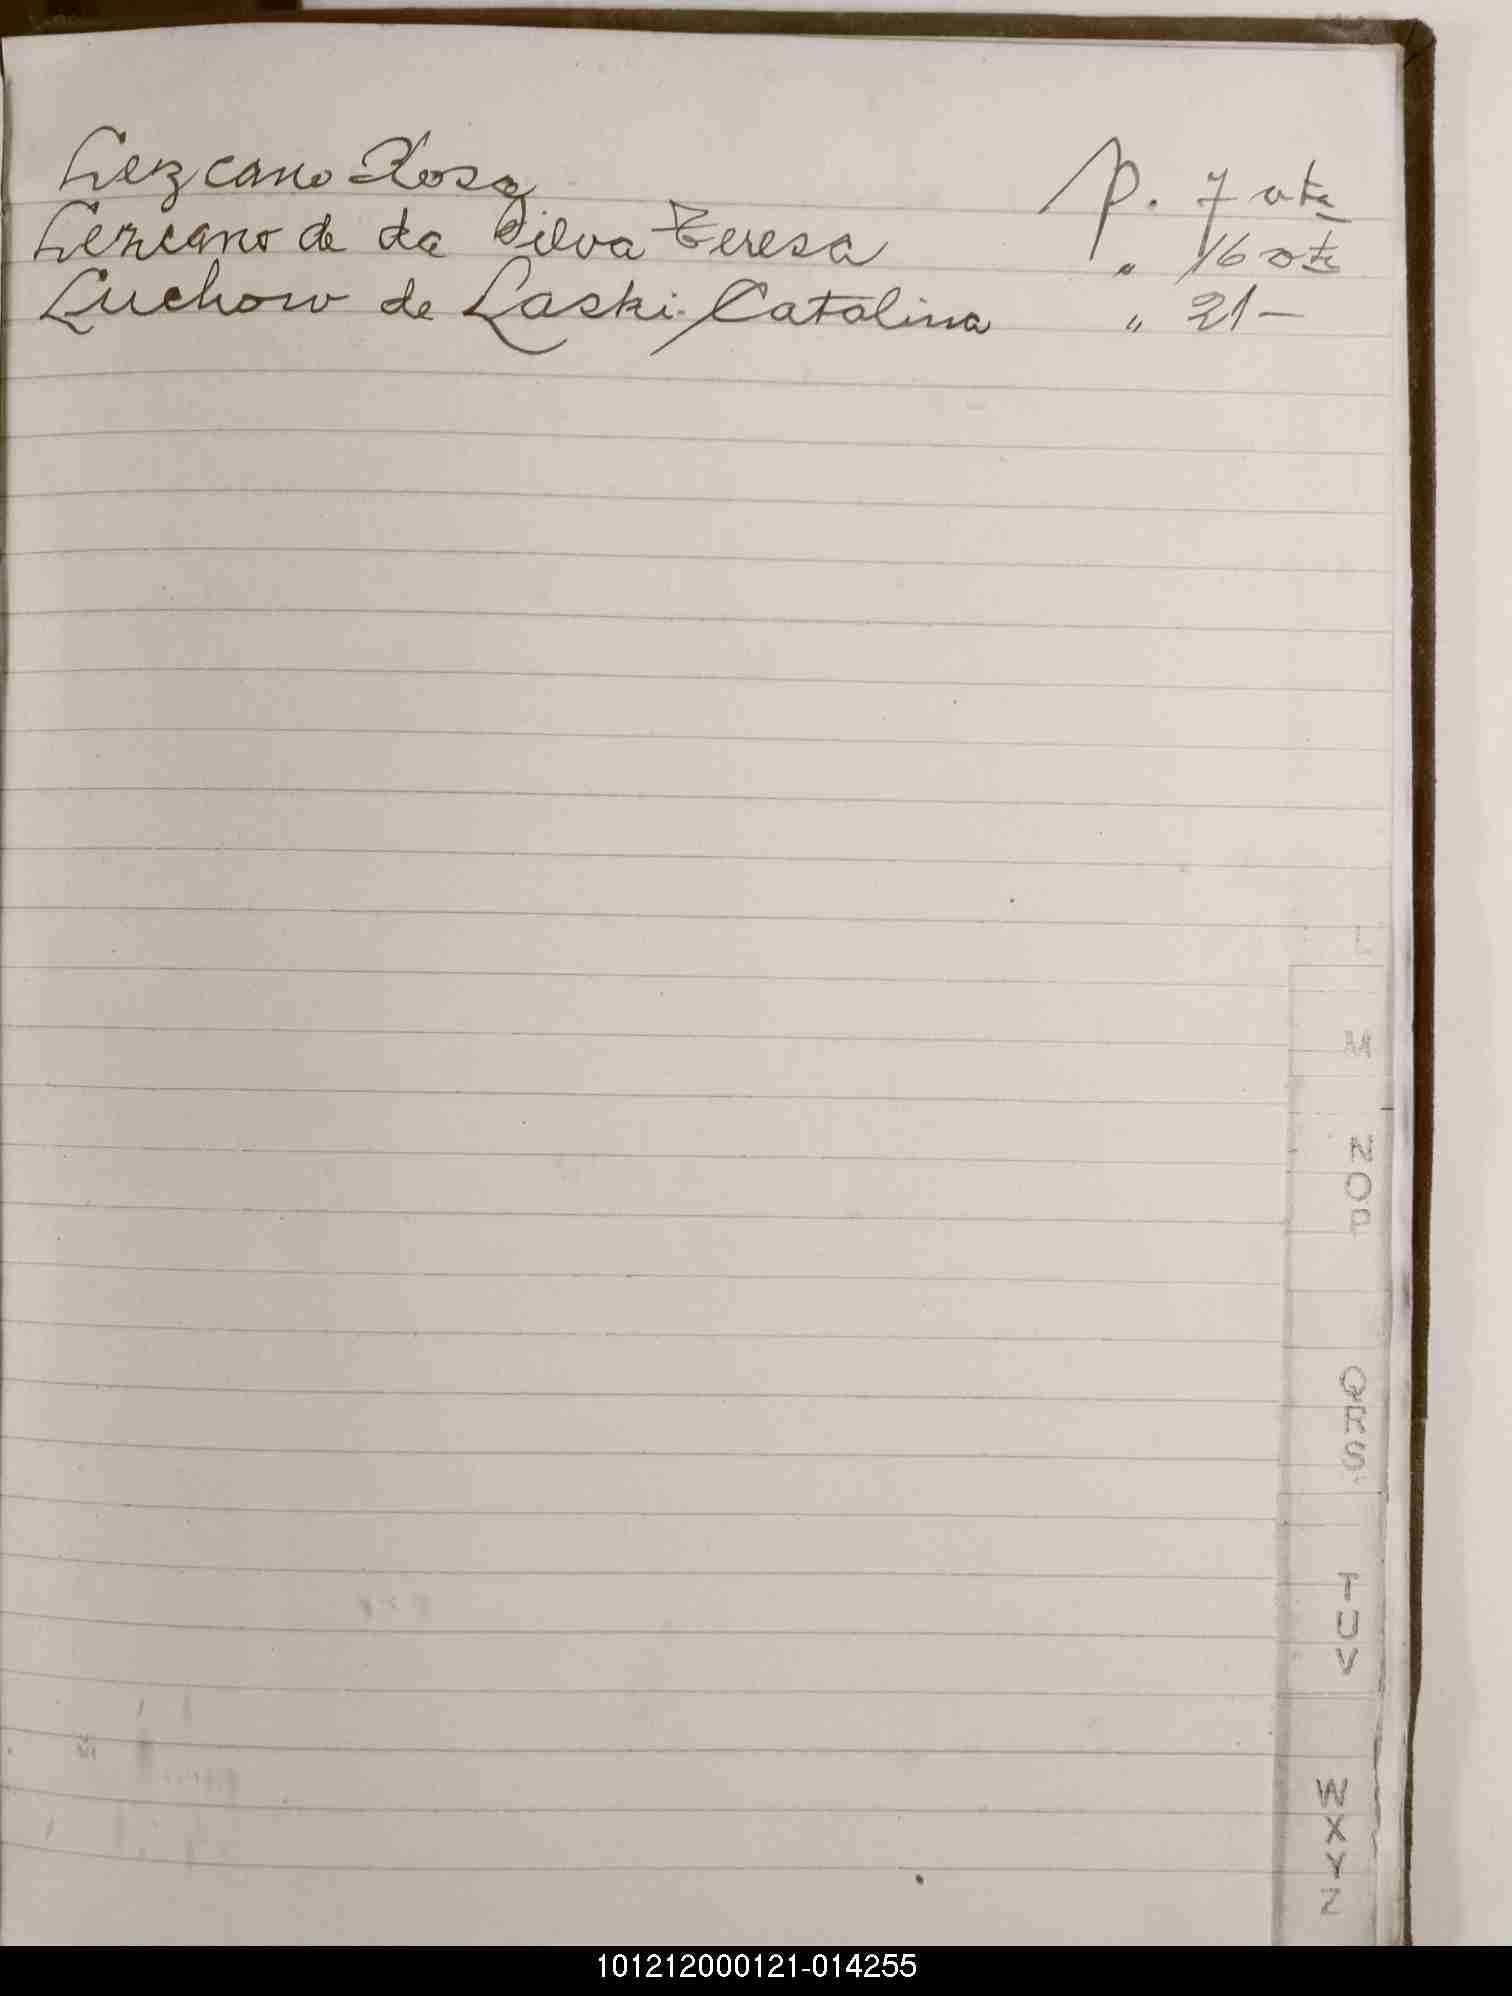 Lezcano Rosa p. 7 vta
Lezcano de da Silva Teresa " 16 vta
Luchow de Laski Catalina " 21 —
L
M
N
O
P
Q
R
S
T
U
V
W
X
Y
Z
101212000121-014255